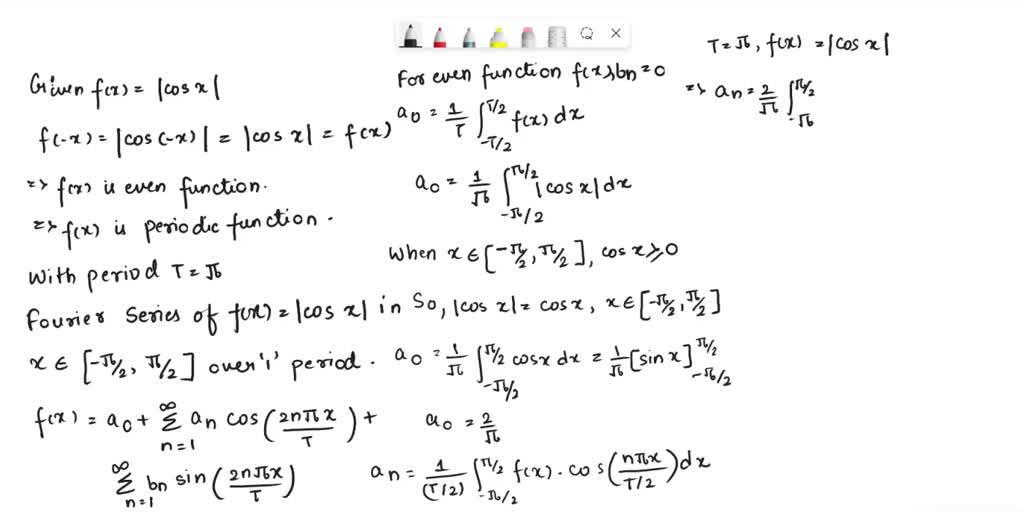 Given f(x) = |cos x|
f(-x) = |cos(-x)| = |cos x| = f(x)
=> f(x) is even function.
=> f(x) is periodic function.
with period T = π
Fourier Series of f(x) = |cos x| in
x ∈ [-π/2, π/2] over '1' period.
f(x) = a0 + ∞Σn=1 an cos(2nπx/T) +
∞Σn=1 bn sin(2nπx/T)
For even function f(x), bn = 0
a0 = 1/T ∫-T/2^T/2 f(x) dx
a0 = 1/π ∫-π/2^π/2 |cos x| dx
when x ∈ [-π/2, π/2], cos x ≥ 0
So, |cos x| = cos x, x ∈ [-π/2, π/2]
a0 = 1/π ∫-π/2^π/2 cos x dx = 1/π [sin x]-π/2^π/2
a0 = 2/π
an = 1/(T/2) ∫-π/2^π/2 f(x) · cos(nπx/T/2) dx
T = π, f(x) = |cos x|
=> an = 2/π ∫-π^π/2